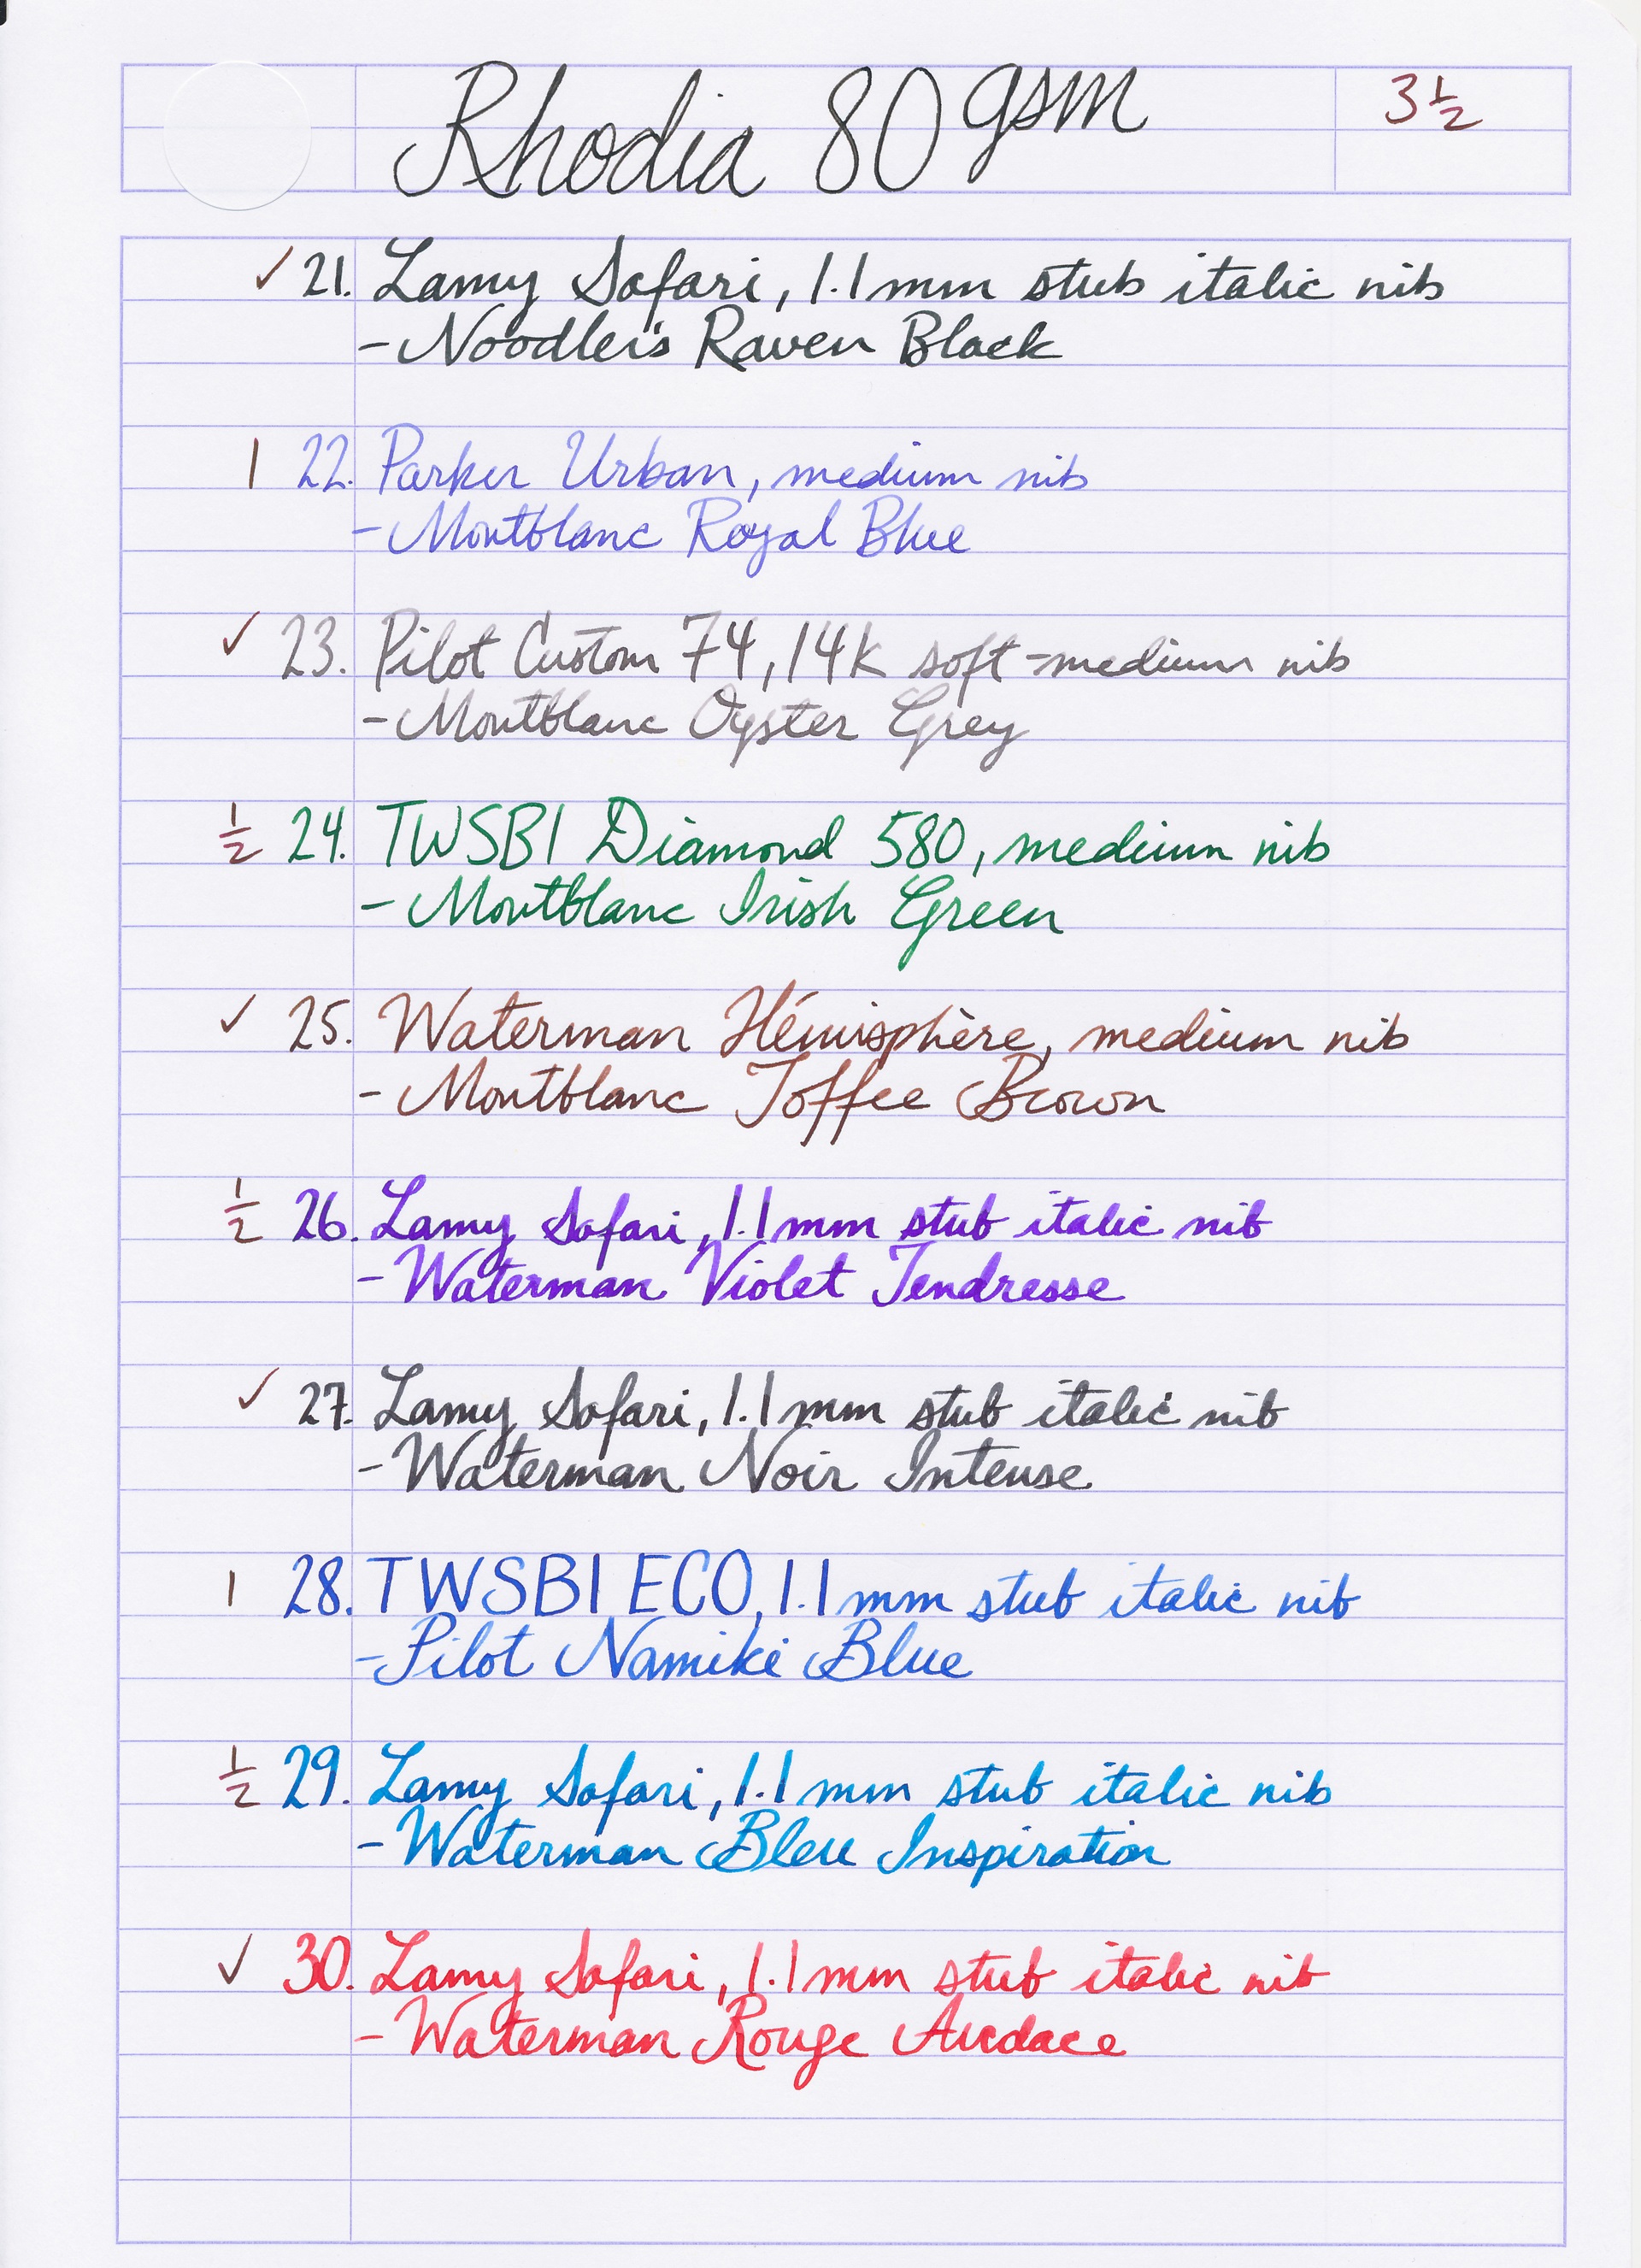 Rhodia 80 gsm 3 ½
✓ 21. Lamy Safari, 1.1mm stub italic nib
- Noodler's Raven Black
1 22. Parker Urban, medium nib
- Montblanc Royal Blue
✓ 23. Pilot Custom 74, 14k soft-medium nib
- Montblanc Oyster Grey
½ 24. TWSBI Diamond 580, medium nib
- Montblanc Irish Green
✓ 25. Waterman Hémisphère, medium nib
- Montblanc Toffee Brown
½ 26. Lamy Safari, 1.1mm stub italic nib
- Waterman Violet Tendresse
✓ 27. Lamy Safari, 1.1mm stub italic nib
- Waterman Noir Intense
1 28. TWSBI ECO, 1.1mm stub italic nib
- Pilot Namiki Blue
½ 29. Lamy Safari, 1.1mm stub italic nib
- Waterman Bleu Inspiration
✓ 30. Lamy Safari, 1.1mm stub italic nib
- Waterman Rouge Audace